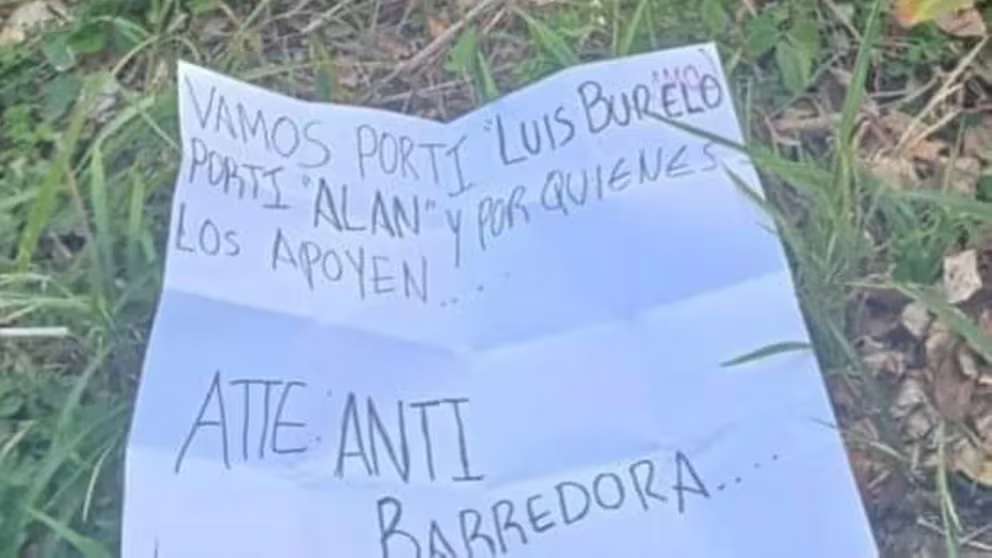 VAMOS PORTI "LUIS BURELO
PORTI "ALAN" Y POR QUIENES
LOS APOYEN....
ATTE: ANTI
BARREDORA....